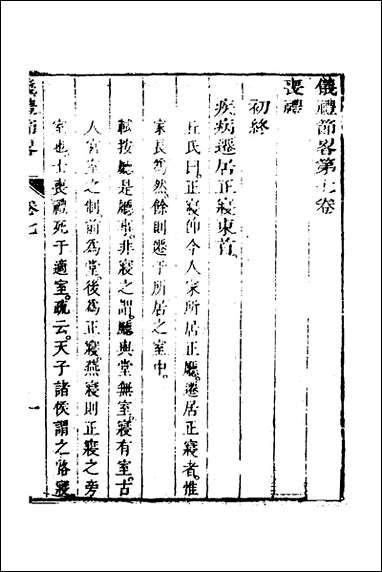 儀禮節畧第七卷
喪禮
初終
疾病遷居正寢東首
丘氏曰正寢卽今人家所居正廳遷居正寢者惟
家長爲然餘則遷于所居之室中
軾按廳是廳事非寢之謂廳與堂無室寢有室古
人宮室之制前爲堂後爲正寢燕寢則正寢之旁
室也士喪禮死于適室疏云天子諸侯謂之路寢
儀禮節畧
卷七
一